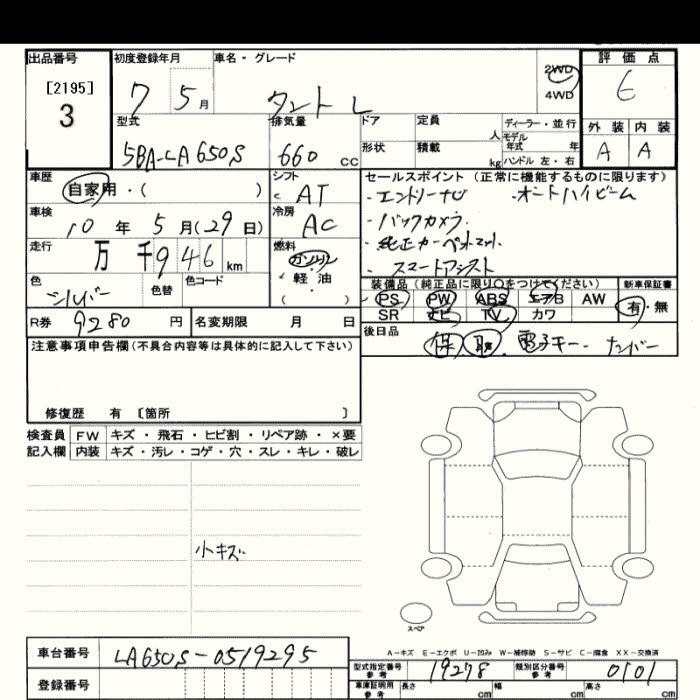 出品番号 初度登録年月 車名・グレード 2WD 4WD 評価点
[2195]
3
7 5月 タント L 6
型式 排気量 ドア 定員 人 ディーラー・並行 外装 内装
5BA-LA650S 660 cc 形状 積載 kg モデル年式 年 ハンドル 左・右 A A
車歴 シフト セールスポイント (正常に機能するものに限ります)
自家用・( ) AT ・エントリーナビ ・オートハイビーム
車検 冷房 ・バックカメラ
10年 5月(29日) AC ・純正カーペットマット
走行 燃料 ・スマートアシスト
万 千9 46 km ガソリン
色 色替 色コード 軽油
シルバー ( )
装備品(純正品に限り○をつけてください) 新車保証書
PS PW ABS エアB AW 有・無
SR ナビ TV カワ
R券 9280円 名変期限 月 日 後日品 保 取 電子キー、ナンバー
注意事項申告欄(不具合内容等は具体的に記入して下さい)
修復歴 有 [箇所 ]
検査員 FW キズ・飛石・ヒビ割・リペア跡・×要
記入欄 内装 キズ・汚レ・コゲ・穴・スレ・キレ・破レ
小キズ
スペア
A-キズ E-エクボ U-凹み W-補修跡 S-サビ C-腐食 XX-交換済
車台番号 LA650S-0519295 型式指定番号 参考 19278 類別区分番号 参考 0101
登録番号 車庫証明用 参考 長さ cm 幅 cm 高さ cm